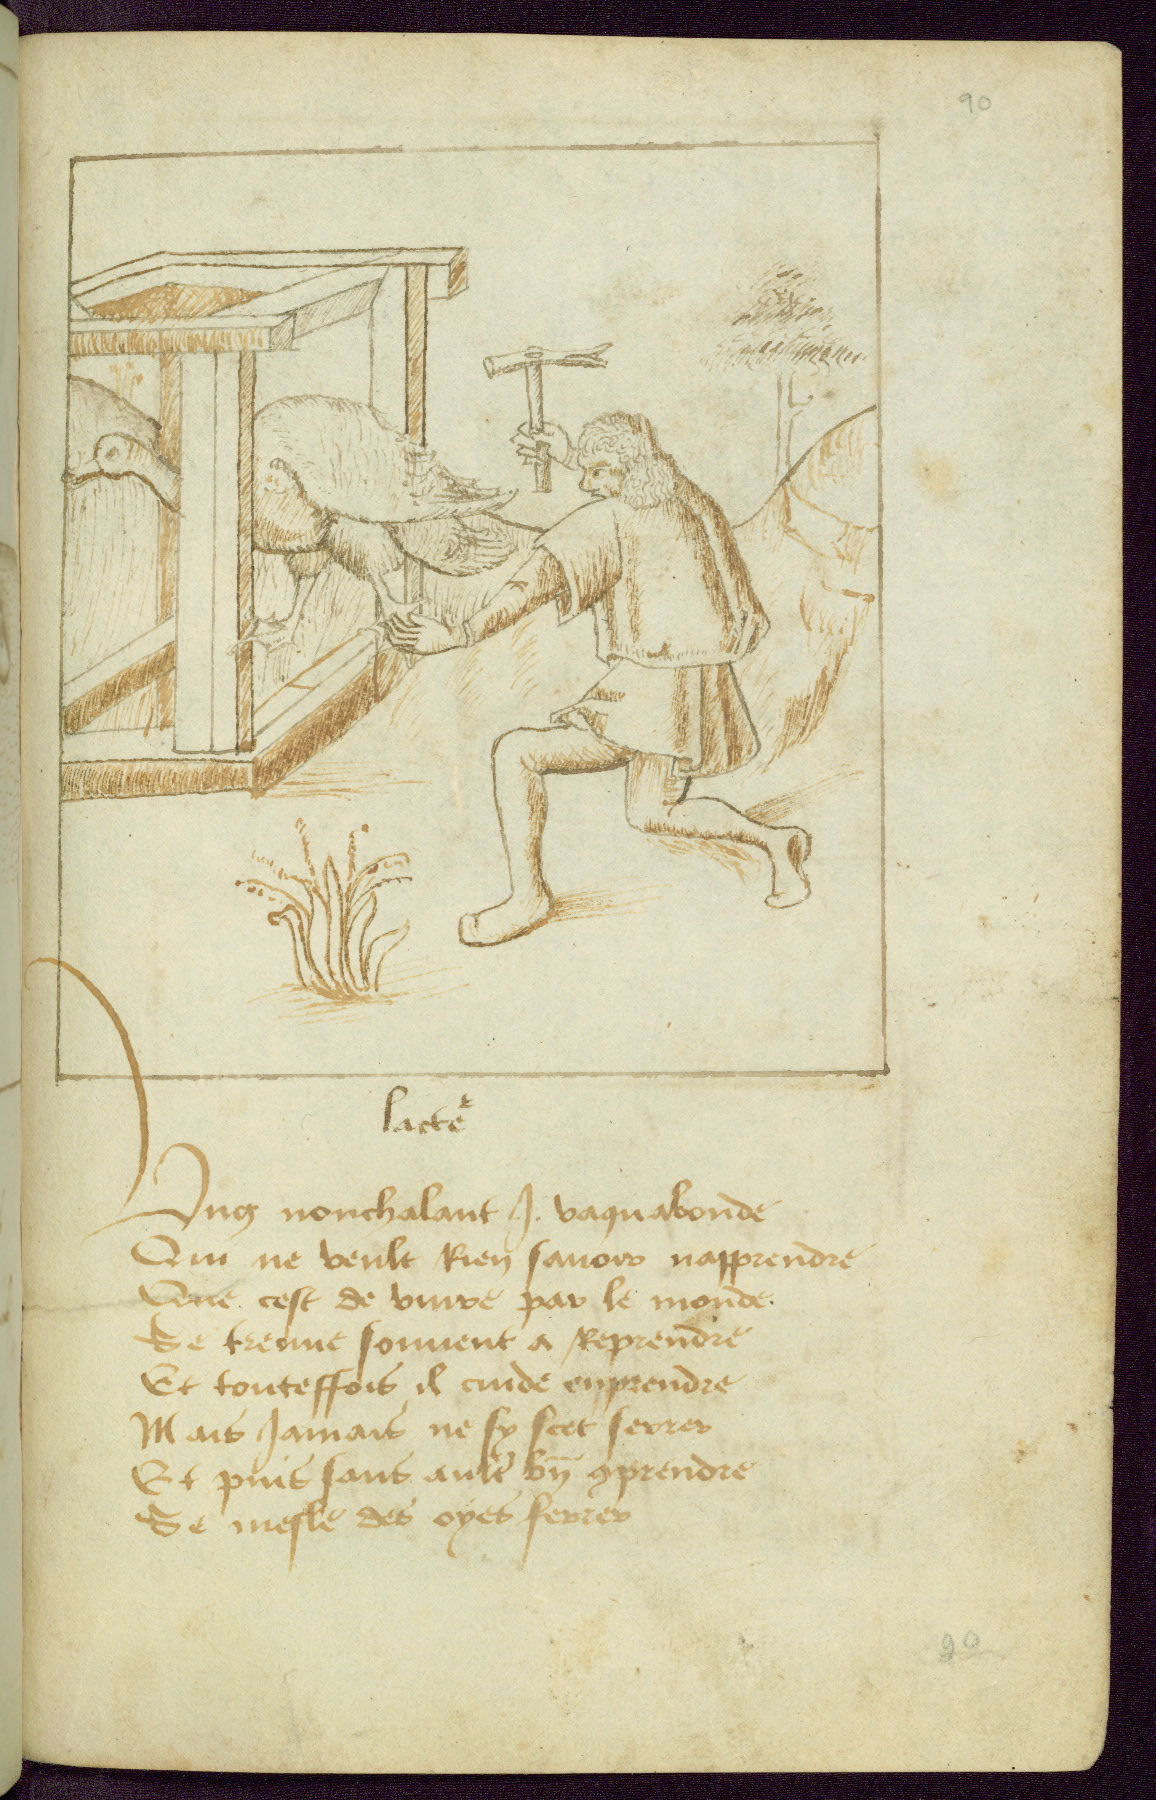 90
lacteur
Ung nonchalant J. vaquabonde
Qui ne veult Rien savoir napprendre
Que cest de vivre par le monde.
Se treuve souvent a Reprendre
Et touteffois il cuide enprendre
Mais Jamais ne sy scet serrer
Et puis sans aultre bn̄
Se mesle des oyes ferrer
90